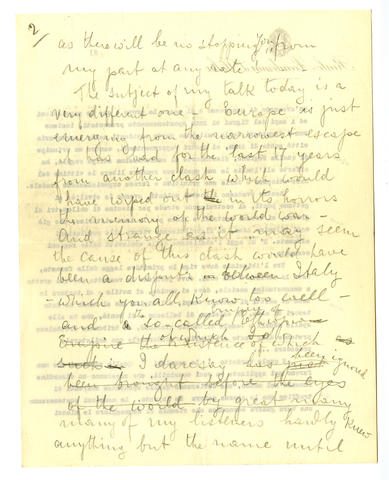 2/
as there will be no stopping you from
my part at any rate
The subject of my talk today is a
very different one - Europe is just
emerging from the narrowest escape
it has had for the last 17 years
from another clash which would
have wiped out the in its horrors
the memory of the world war -
And strange as it may seem
the cause of this clash would have
been a dispute in between Italy
- which you all know too well -
and a so-called Ethiopian
Empire the existence of which as
such is I daresay has just been ignored
been brought before the eyes
of the world by great many
many of my listeners hardly knew
anything but the name until